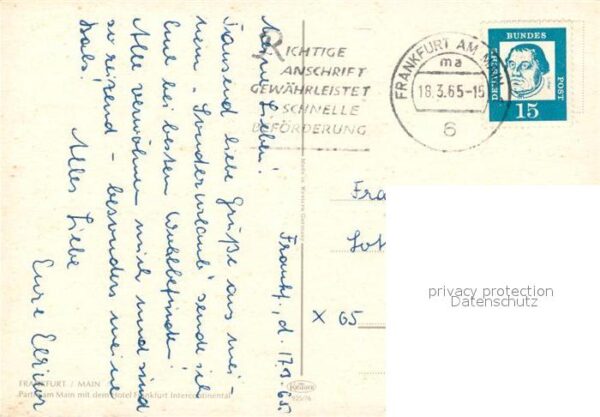 Frankf., d. 17.3.65.
Meine Lieben!
Tausend liebe Grüße aus mei-
nem "Sonderurlaub" sende ich
Euch bei bestem Wohlbefinden.
Alle verwöhnen mich und sind
so reizend - besonders meine
Alles Liebe
Eure
RICHTIGE
ANSCHRIFT
GEWÄHRLEISTET
SCHNELLE
BEFÖRDERUNG
FRANKFURT AM MAIN
ma
18.3.65-15
6
DEUTSCHE
BUNDES
POST
15
Fra
Lot
X 65
privacy protection
Datenschutz
Made in Western Germany
FRANKFURT / MAIN
Partie am Main mit dem Hotel Frankfurt Intercontinental